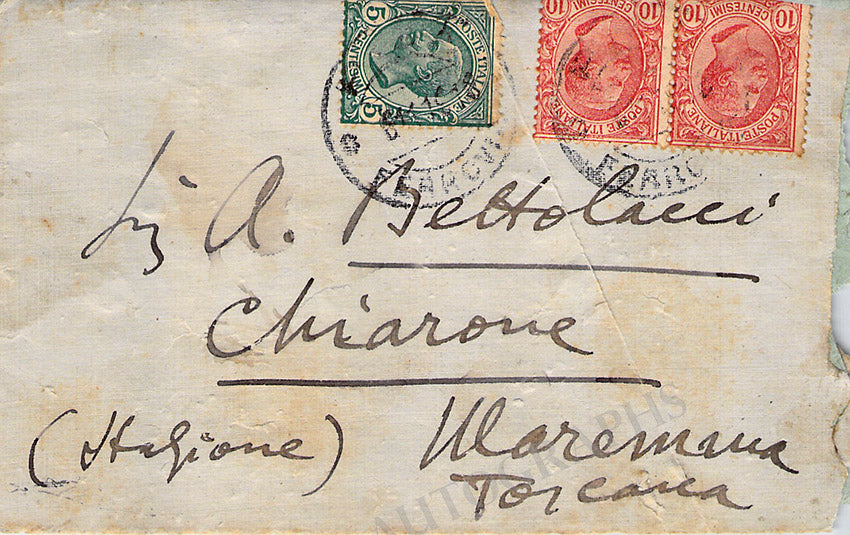 5 POSTE ITALIANE 5
CENTESIMI
10 POSTE ITALIANE 10
CENTESIMI
10 POSTE ITALIANE 10
CENTESIMI
Sig A. Bettolacci
Chiarone
(Stazione) Maremma
Toscana
AUTOGRAPHS